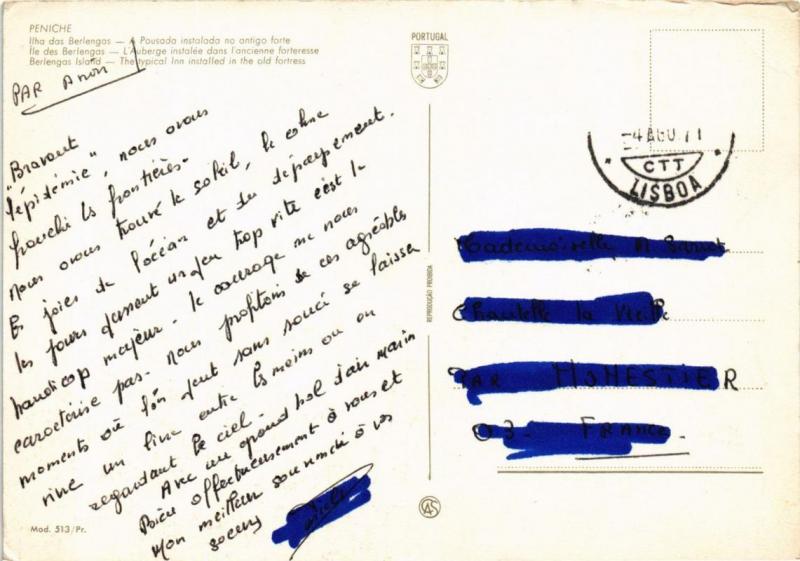 PENICHE
Ilha das Berlengas — A Pousada instalada no antigo forte
Île des Berlengas — L'Auberge instalée dans l'ancienne forteresse
Berlengas Island — The typical Inn installed in the old fortress
PAR Avion
"Bravant
l'épidémie", nous avons
franchi les frontières.
Nous avons trouvé le soleil, le calme
les joies de l'océan et du dépaysement.
les jours passent un peu trop vite c'est le
handicap majeur. le courage ne nous
caractérise pas. Nous profitons de ces agréables
moments où l'on peut sans souci se laisser
vivre un livre entre les mains ou en
regardant le ciel.
Avec un grand bol d'air marin
Bien affectueusement à vous et
mon meilleur souvenir à vos
soeurs
Mod. 513/Pr.
PORTUGAL
REPRODUÇÃO PROIBIDA
-4 AGO 71
CTT
LISBOA
Mademoiselle M
Chantelle la Vieille
PAR MONESTIER
03 - FRANCE.